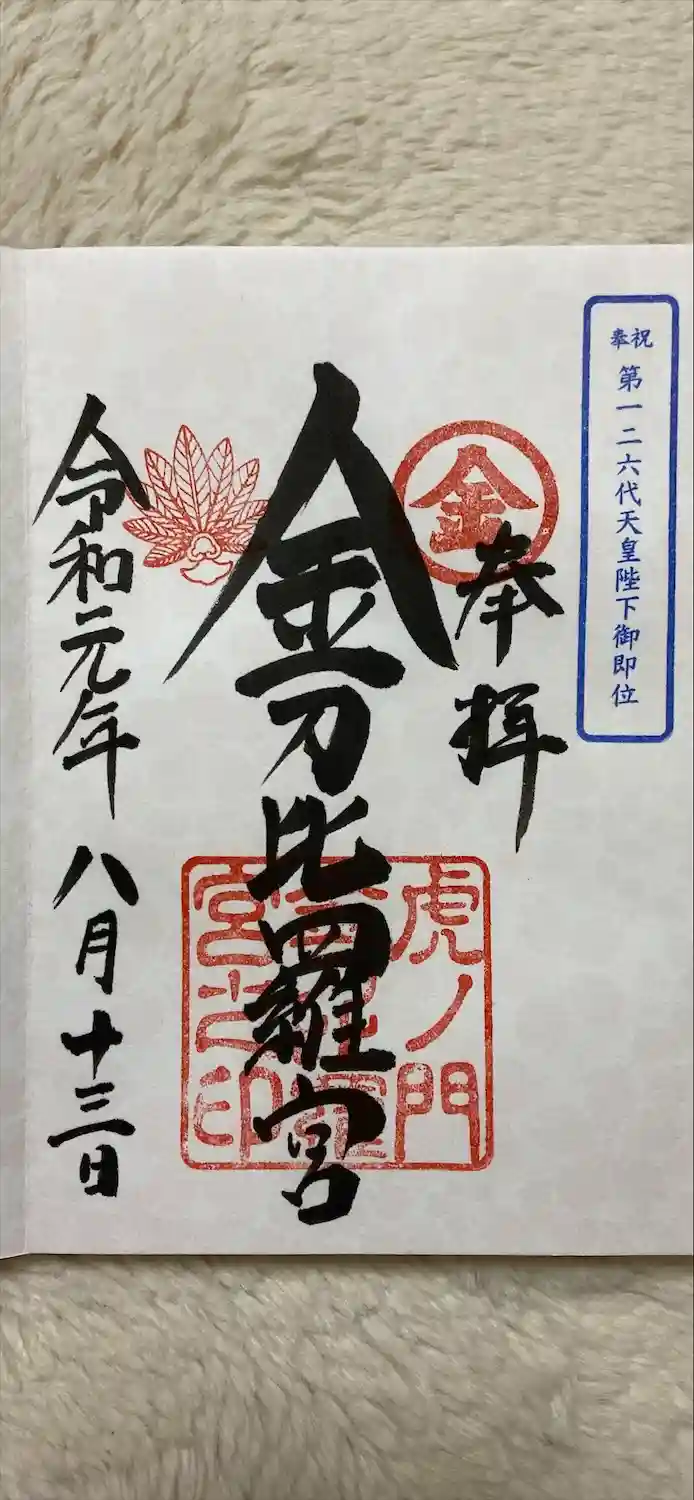 奉祝
第一二六代天皇陛下御即位
金
奉拝
金刀比羅宮
虎ノ門
宮之印
令和元年 八月十三日